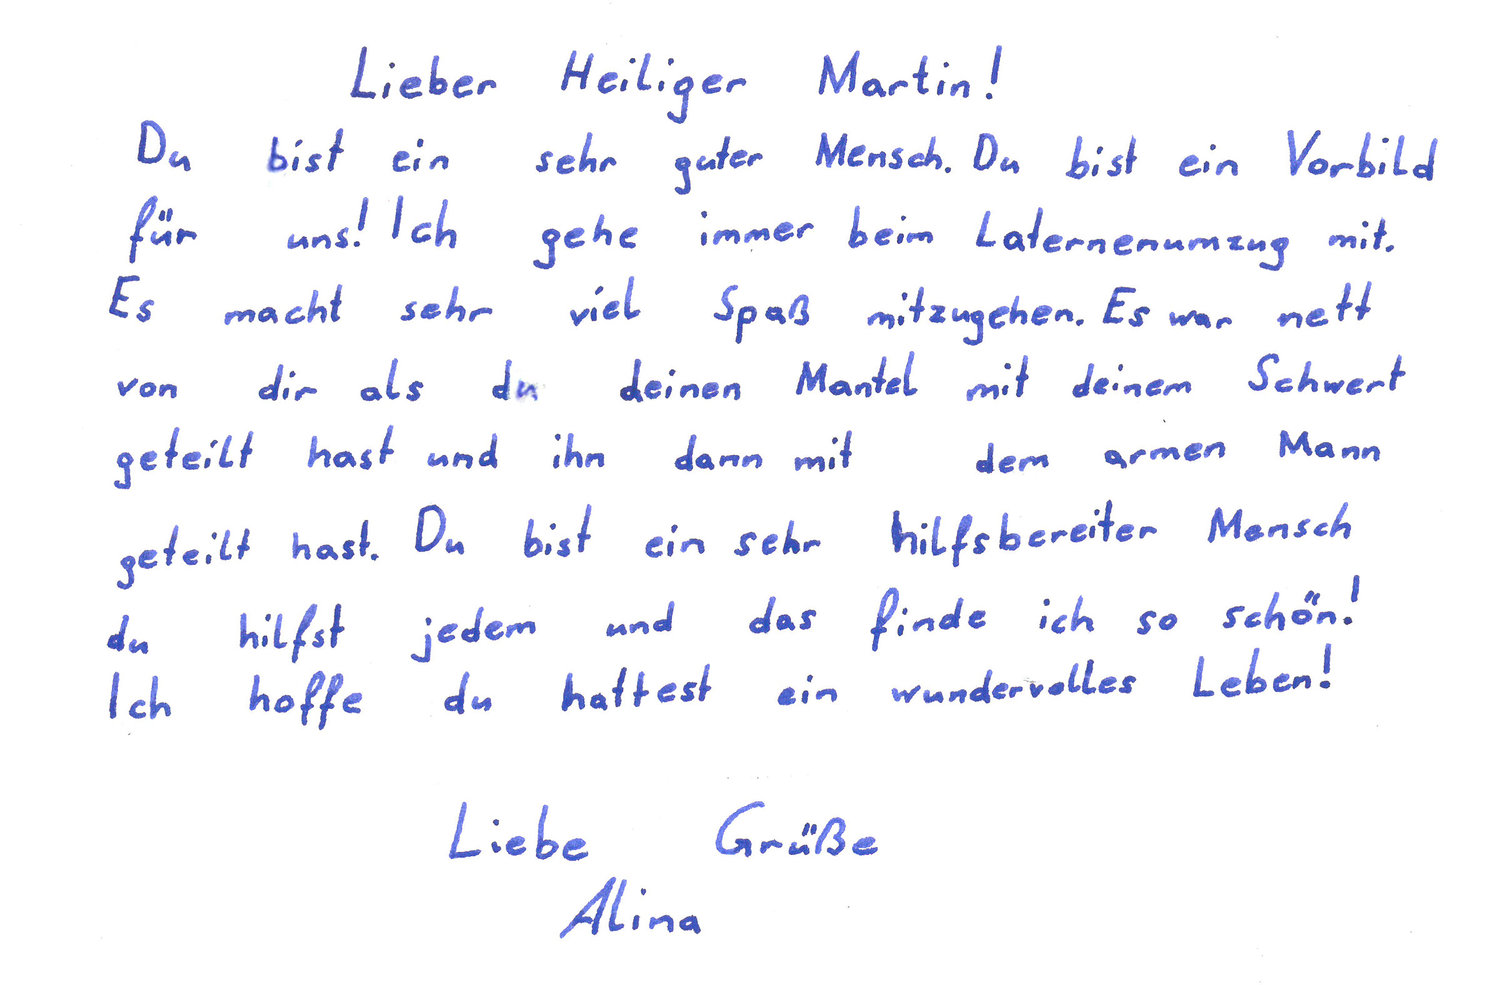 Lieber Heiliger Martin!
Du bist ein sehr guter Mensch. Du bist ein Vorbild
für uns! Ich gehe immer beim Laternenumzug mit.
Es macht sehr viel Spaß mitzugehen. Es war nett
von dir als du deinen Mantel mit deinem Schwert
geteilt hast und ihn dann mit dem armen Mann
geteilt hast. Du bist ein sehr hilfsbereiter Mensch
du hilfst jedem und das finde ich so schön!
Ich hoffe du hattest ein wundervolles Leben!
Liebe Grüße
Alina